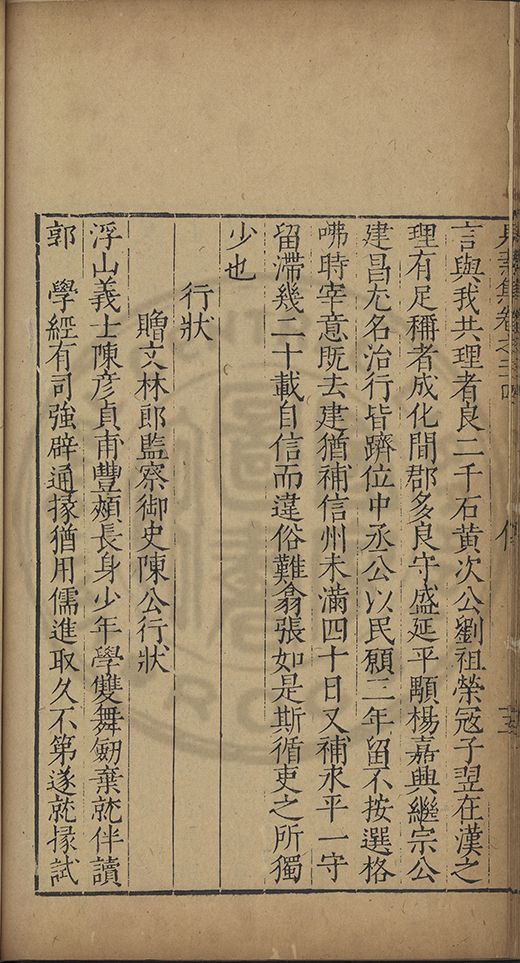 言與我共理者良二千石黄次公劉祖榮冦子翌在漢之
理有足稱者成化間郡多良守盛延平顒楊嘉興繼宗公
建昌尤名治行皆躋位中丞公以民願三年留不按選格
咈時宰意既去建猶補信州未滿四十日又補永平一守
留滯幾二十載自信而違俗難翕張如是斯循吏之所獨
少也
行狀
贈文林郎監察御史陳公行狀
浮山義士陳彦貞甫豐頰長身少年學雙舞劒棄就伴讀
郭 學經有司強辟通掾猶用儒進取久不第遂就掾試